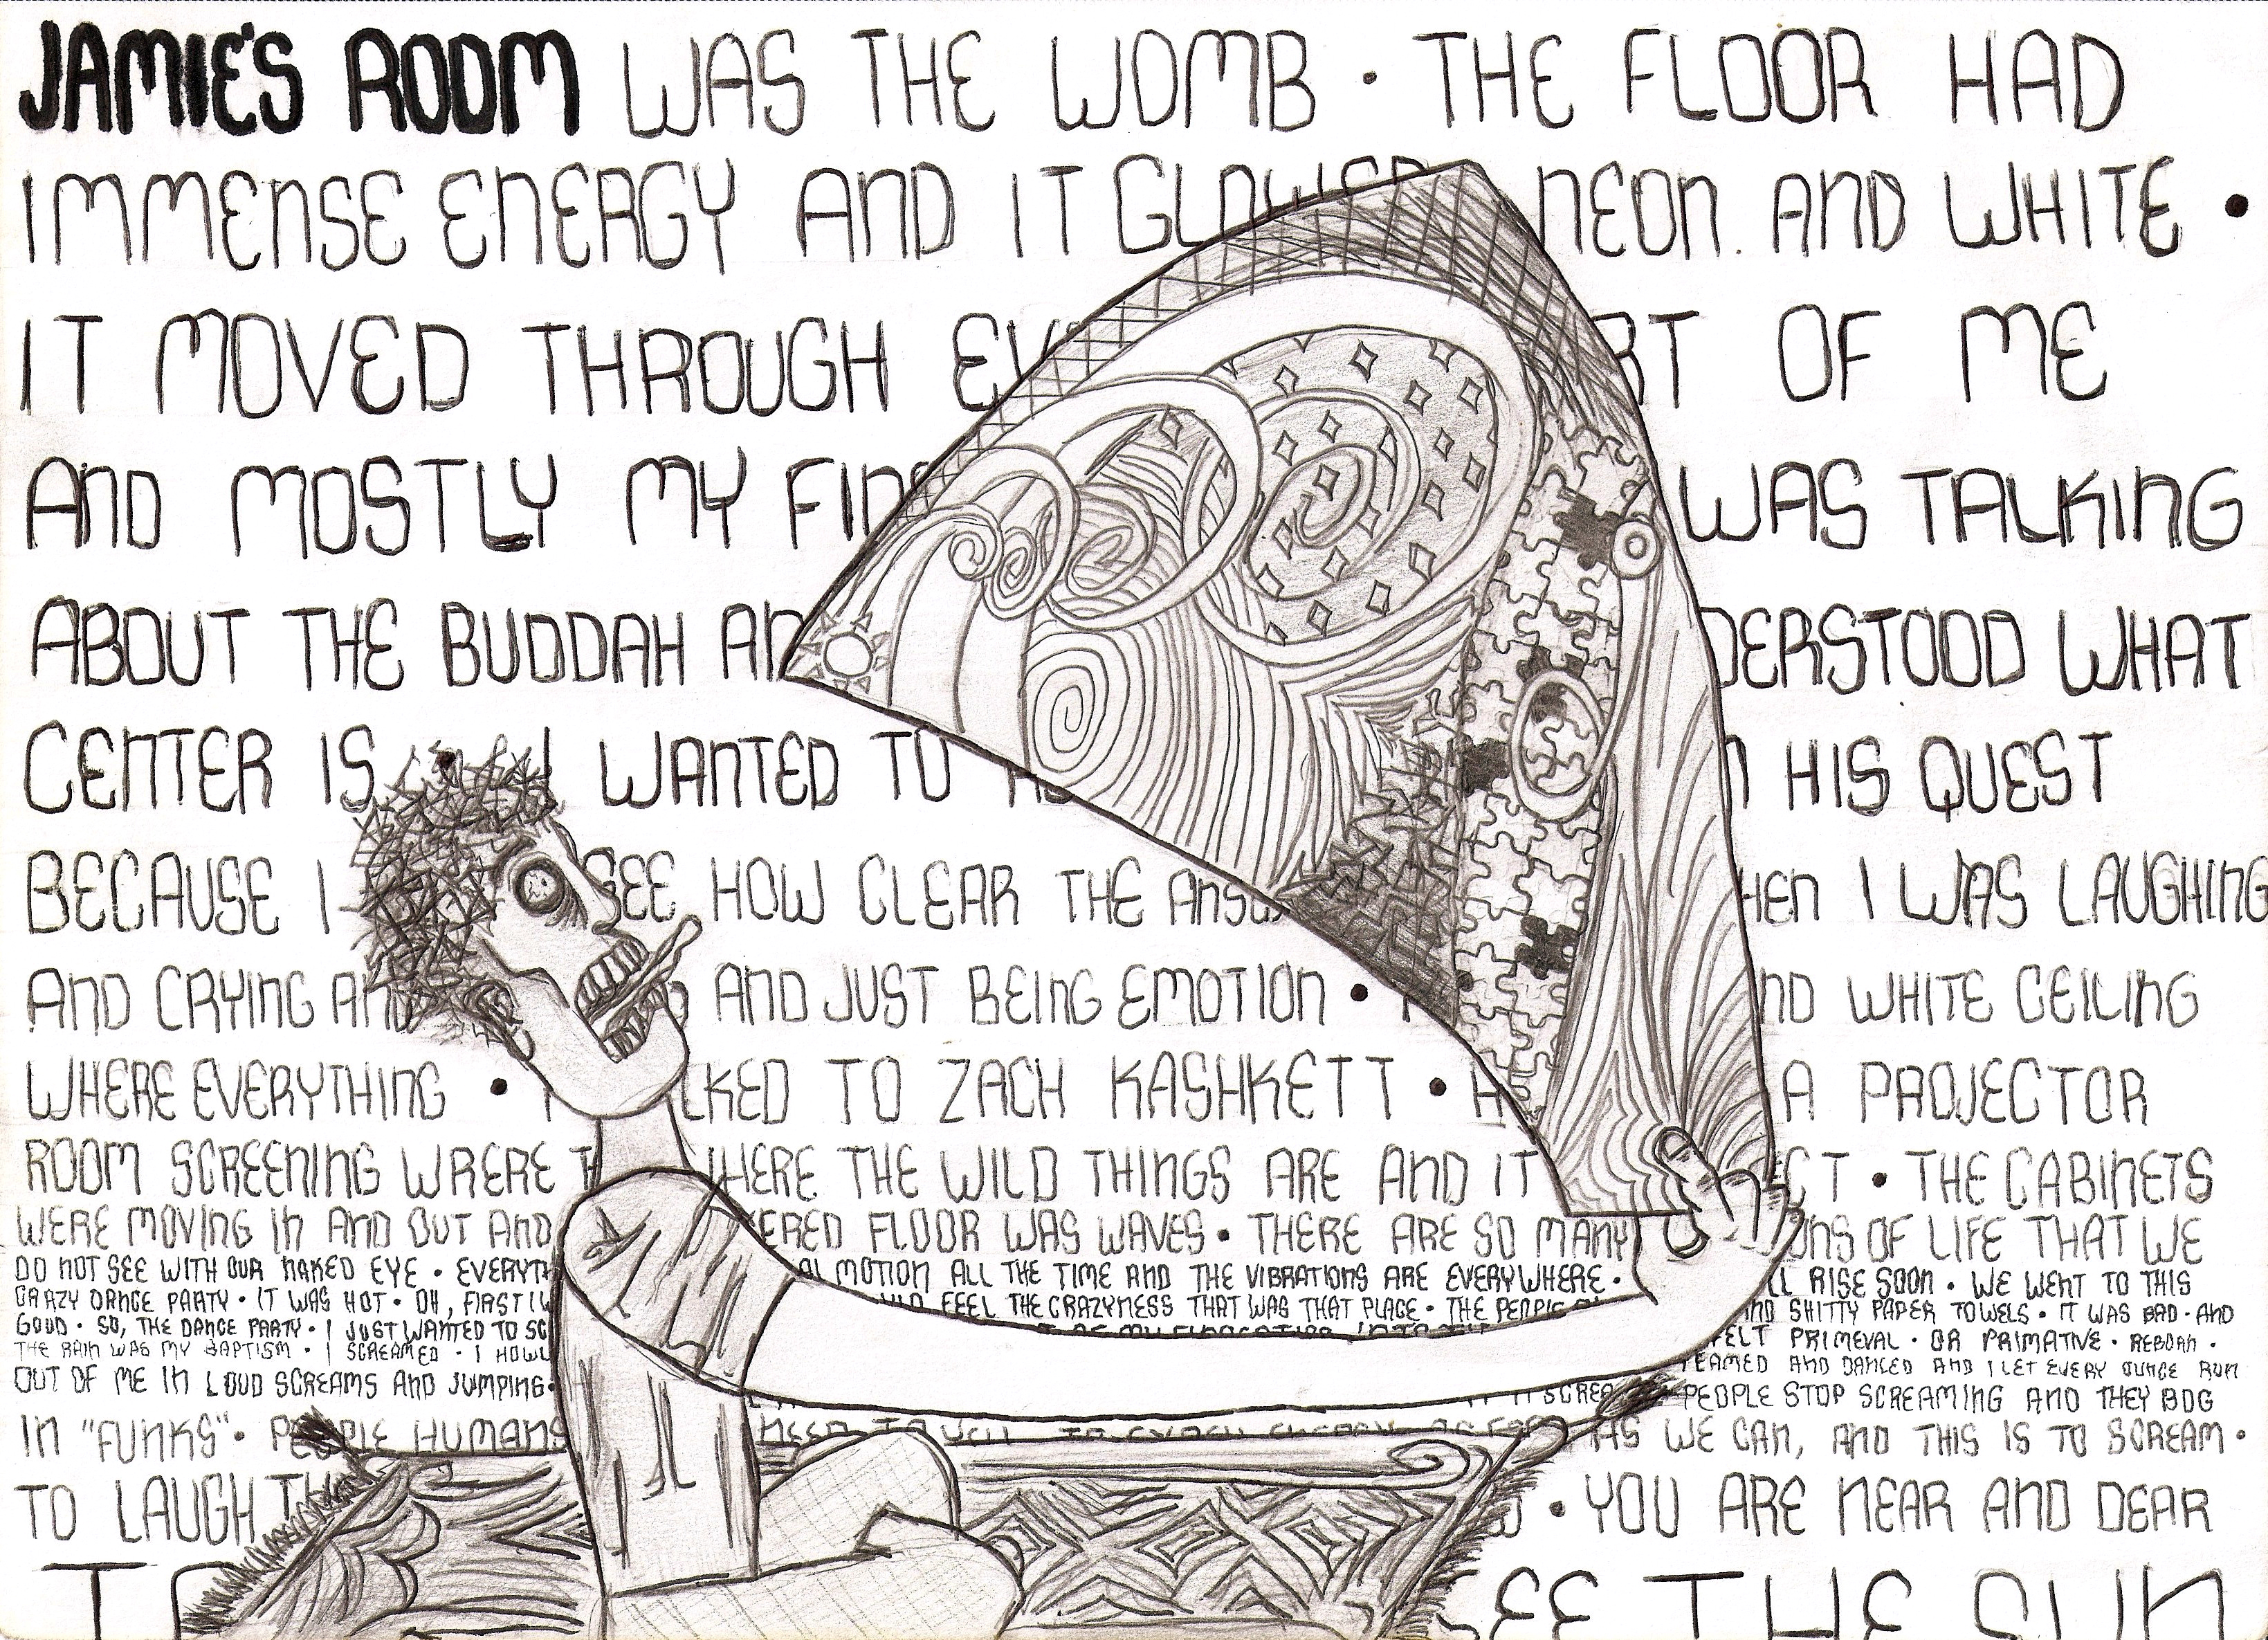 JAMIE'S ROOM WAS THE WOMB • THE FLOOR HAD
IMMENSE ENERGY AND IT GLOWED NEON. AND WHITE •
IT MOVED THROUGH EV RT OF ME
AND MOSTLY MY FIN WAS TALKING
ABOUT THE BUDDAH AN DERSTOOD WHAT
CENTER IS I WANTED TO HIS QUEST
BECAUSE I SEE HOW CLEAR THE ANSW HEN I WAS LAUGHING
AND CRYING AND AND JUST BEING EMOTION • ND WHITE CEILING
WHERE EVERYTHING • LKED TO ZACH KASHKETT • A PROJECTOR
ROOM SCREENING WRERE T HERE THE WILD THINGS ARE AND IT CT • THE CABINETS
WERE MOVING IN AND OUT AND ERED FLOOR WAS WAVES • THERE ARE SO MANY ONS OF LIFE THAT WE
DO NOT SEE WITH OUR NAKED EYE • EVERYTH AL MOTION ALL THE TIME AND THE VIBRATIONS ARE EVERYWHERE • LL RISE SOON • WE WENT TO THIS
CRAZY DANCE PARTY • IT WAS HOT • OH, FIRST I W ULD FEEL THE CRAZYNESS THAT WAS THAT PLACE • THE PEOPLE AND SHITTY PAPER TOWELS • IT WAS BAD • AND
GOOD • SO, THE DANCE PARTY • I JUST WANTED TO SC FELT PRIMEVAL • OR PRIMATIVE • REBORN •
THE RAIN WAS MY BAPTISM • I SCREAMED • I HOWL EAMED AND DANCED AND I LET EVERY OUNCE RUN
OUT OF ME IN LOUD SCREAMS AND JUMPING • IT SCREA PEOPLE STOP SCREAMING AND THEY BOG
IN "FUNKS" • PEOPLE HUMANS NEED TO YELL TO EXPEL ENERGY AS FAR AS WE CAN, AND THIS IS TO SCREAM •
TO LAUGH TH W • YOU ARE NEAR AND DEAR
TO EE THE SUN